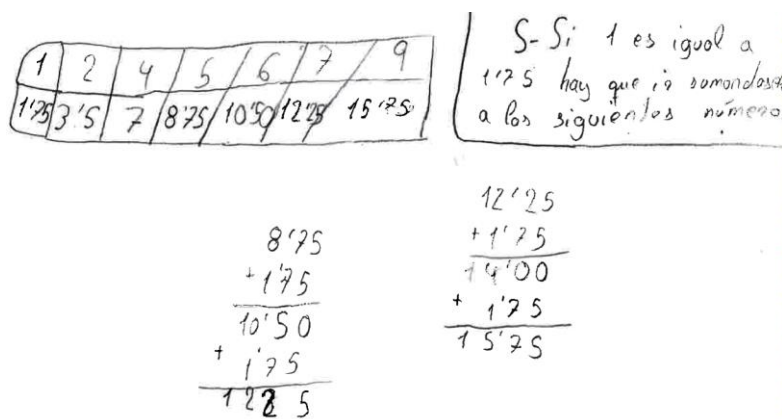 1 2 4 5 6 7 9
1'75 3'5 7 8'75 10'50 12'25 15'75
S- Si 1 es igual a
1'75 hay que ir sumandose
a los siguientes número
8'75
+1'75
10'50
+ 1'75
12 2 5
12'25
+ 1'75
14'00
+ 1'75
15'75